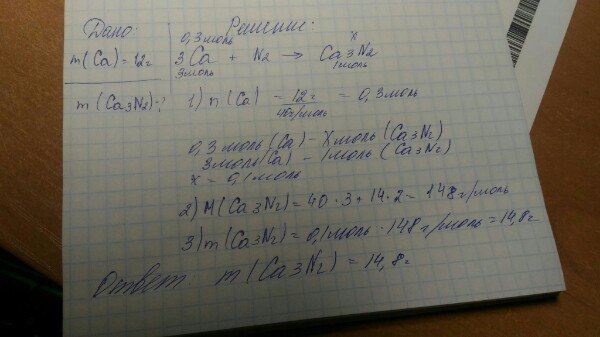 Дано: Решение:
0,3моль x
m(Ca) = 12г 3Ca + N2 → Ca3N2
3моль 1моль
m(Ca3N2)-? 1) n(Ca) = 12г / 40г/моль = 0,3моль
0,3моль(Ca) - Xмоль(Ca3N2)
3моль(Ca) - 1моль(Ca3N2)
x = 0,1моль
2) M(Ca3N2) = 40·3 + 14·2 = 148г/моль
3) m(Ca3N2) = 0,1моль · 148г/моль = 14,8г
Ответ: m(Ca3N2) = 14,8г